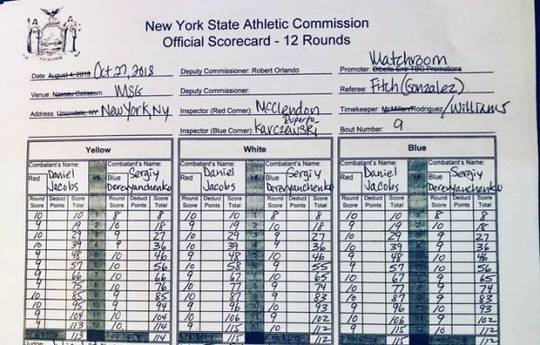 New York State Athletic Commission
Official Scorecard - 12 Rounds
Matchroom
Date: August 4, 2018 Oct 27, 2018 Deputy Commissioner: Robert Orlando Promoter:
Venue: Nassau Coliseum MSG Deputy Commissioner: Referee: Fitch (Gonzalez)
Address: Uniondale, NY New York, NY Inspector (Red Corner) McClendon Timekeeper: McMillan/Rodriguez/Williams
Ruperto
Inspector (Blue Corner) Karczewski Bout Number: 9
Yellow White Blue
Combatant's Name: Combatant's Name: Combatant's Name: Combatant's Name: Combatant's Name: Combatant's Name:
Red Daniel Jacobs vs. Blue Sergiy Derevyanchenko Red Daniel Jacobs Blue Sergiy Derevyanchenko Red Daniel Jacobs Blue Sergiy Derevyanchenko
Round Score Deduct Points Score Total Round Score Deduct Points Score Total Round Score Deduct Points Score Total Round Score Deduct Points Score Total Round Score Deduct Points Score Total Round Score Deduct Points Score Total
10 10 8 8 10 10 8 8 10 10 8 8
9 19 10 18 9 19 10 18 9 19 10 18
10 29 9 27 10 29 9 27 10 29 9 27
10 39 9 36 10 39 9 36 10 39 9 36
9 48 10 46 9 48 10 46 9 48 10 46
9 57 10 56 10 58 9 55 9 57 10 56
9 66 10 66 9 67 10 65 9 66 10 66
9 75 10 76 10 77 9 74 10 76 9 75
10 85 9 85 10 87 9 83
10 95 9 94 9 96 10 93
9 104 10 104 10 106 9 102
9 113 10 114 9 115 10 112 115 112
114 115 112 115 112